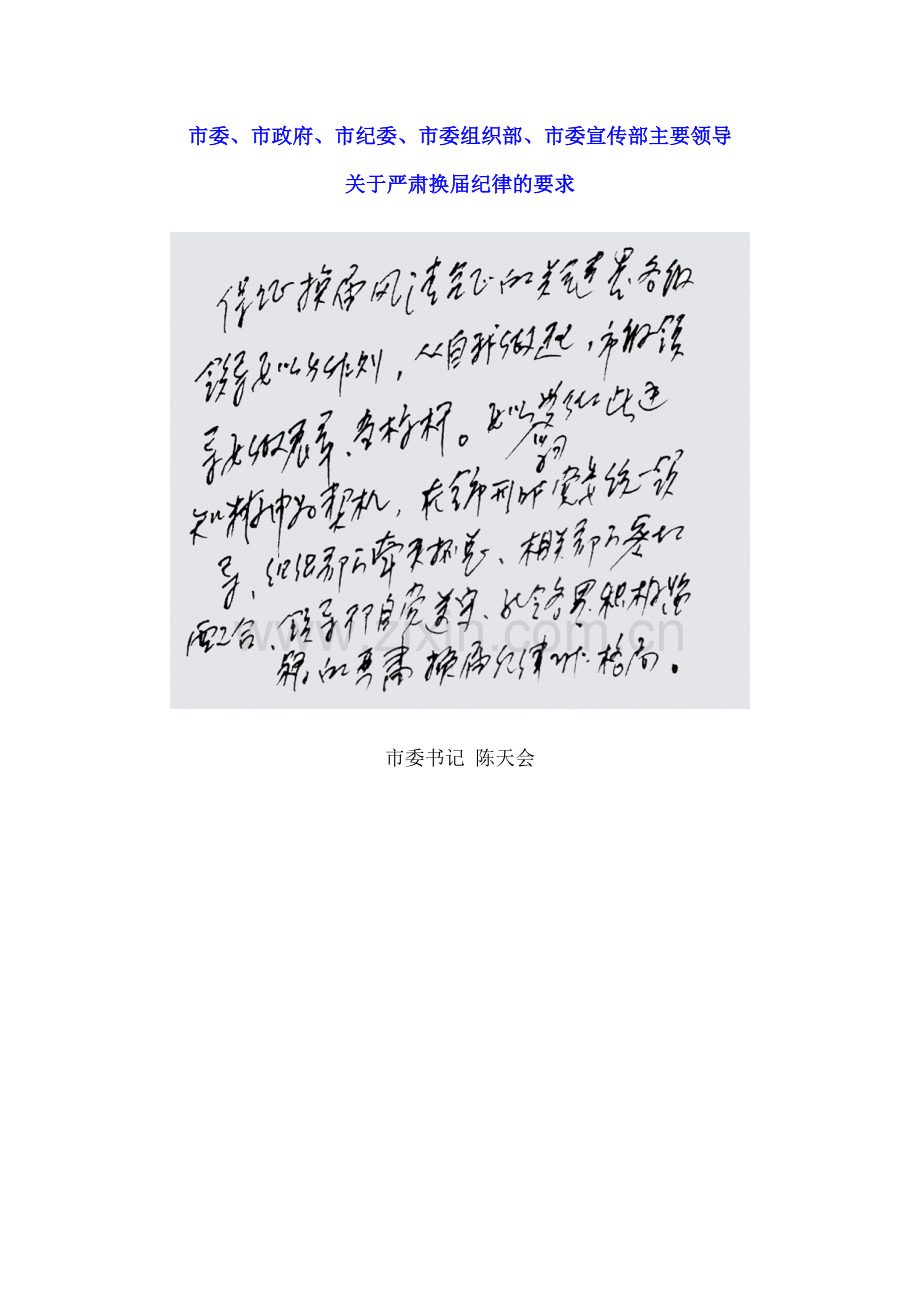 市委、市政府、市纪委、市委组织部、市委宣传部主要领导
关于严肃换届纪律的要求
保证换届风清气正的关键是各级
领导要以身作则，从自我做起，市级领
导要做表率、当标杆。要以学习贯彻此通
知精神为契机，在全市形成党委统一领
导、组织部门牵头抓总、相关部门密切
配合、领导干部自觉遵守、社会各界积极监
督的严肃换届纪律工作格局。
www.zixin.com.cn
市委书记 陈天会